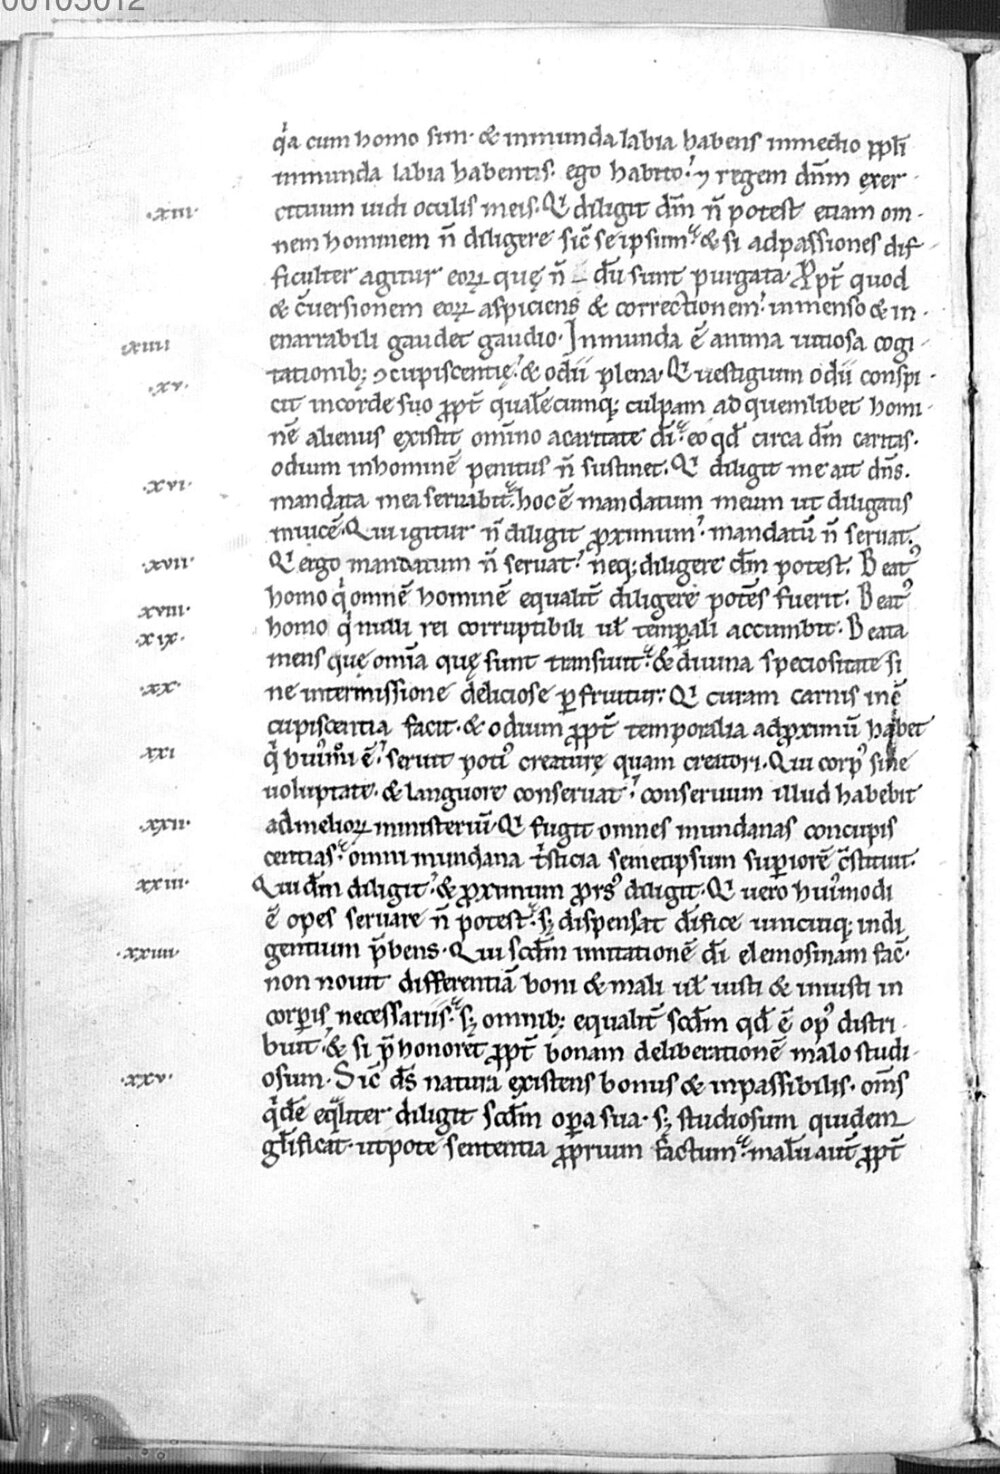 00105012
q̇a cum homo sim· & inmunda labia habens inmedio ppl̄i
inmunda labia habentis. ego habito· ⁊ regem dn̄m exer-
·xiii· cituum uidi oculis meis. Q̇ diligit dm̄ n̄ potest etiam om-
nem hominem n̄ diligere sic̄ se ipsum. & si adpassiones dif
ficulter agitur eoꝝ quę n̄ dū sunt purgata. Ꝓpt̄ quod
& c̄uersionem eoꝝ aspiciens & correctionem. inmenso & in-
xiiii enarrabili gaudet gaudio. Inmunda ē anima uitiosa cogi-
·xv· tationib; ꝯcupiscentię. & odii plena. Q̇ uestigium odii conspi-
cit incorde suo ꝓpt̄ qualēcumq; culpam ad quemlibet homi-
nē alienus existit omīno acaritate dī. eo qd̄ circa dm̄ caritas.
odium inhominē penitus n̄ sustinet. Q̇ diligit me ait dn̄s.
·xvi· mandata mea seruabit. hoc ē mandatum meum ut diligatis
inuicē. Qui igitur n̄ diligit ꝓximum. mandatū n̄ seruat.
·xvii· Q̇ ergo mandatum n̄ seruat. neq; diligere dm̄ potest. Beat᾽
homo q̇ omnē hominē equalit̄ diligere potēs fuerit. Beat᾽
·xviii· homo q̇ nulli rei corruptibili ul̄ temꝑali accumbit. Beata
·xix· mens quę omīa quę sunt transiuit. & diuina speciositate si
·xx· ne intermissione deliciose ꝑfruitur. Q̇ curam carnis inē
cupiscentia facit. & odium ꝓpt̄ temporalia adꝓximū habet
xxi q̇ hui᾽mōi ē. seruit poti᾽ creaturę quam creatori. Qui corp᾽ sine
uoluptate. & languore conseruat. conseruum illud habebit
·xxii· admelioꝝ ministeriū. Q̇ fugit omnes mundanas concupis
centias. omni mundana tr̄sticia semetipsum suꝑiorē c̄stituit.
xxiii· Qui dm̄ diligit. & ꝓximum ꝓrs᾽ diligit. Q̇ uero hui᾽modi
ē opes seruare n̄ potest. sꝫ dispensat dīfice unicuiq; indi
·xxiiii· gentium p̄bens. Qui scdm̄ imitationē dī elemosinam fac̄.
non nouit differentiā boni & mali ul̄ iusti & iniusti in
corꝑis necessariis. sꝫ omnib; equalit̄ scdm̄ qd̄ ē op᾽ distri-
buit. & si p̄honoret ꝓpt̄ bonam deliberationē malo studi-
·xxv· osum. Sic̄ ds̄ natura existens bonus & inpassibilis. oms̄
q̇dē eq̇liter diligit scdm̄ oꝑa sua. sꝫ studiosum quidem
gl̄ificat. utpote sententia ꝓprium factum. malū aut̄ ꝓpt̄